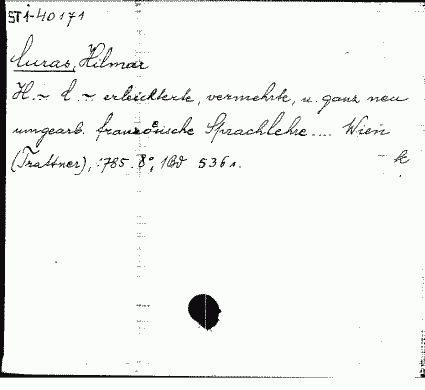 ST1-40171
Curas, Hilmar
H. ~ C. ~ erleichterte, vermehrte, u. ganz neu
umgearb. französische Sprachlehre.... Wien
(Trattner), 1785. 8°, 1 Bd 536 s. k